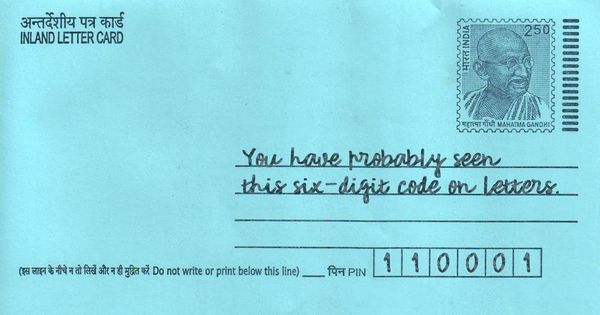 अन्तर्देशीय पत्र कार्ड
INLAND LETTER CARD
भारत INDIA
2.50
महात्मा गाँधी MAHATMA GANDHI
You have probably seen
this six-digit code on letters.
(इस लाइन के नीचे न तो लिखें और न ही मुद्रित करें Do not write or print below this line) ____ पिन PIN 1 1 0 0 0 1